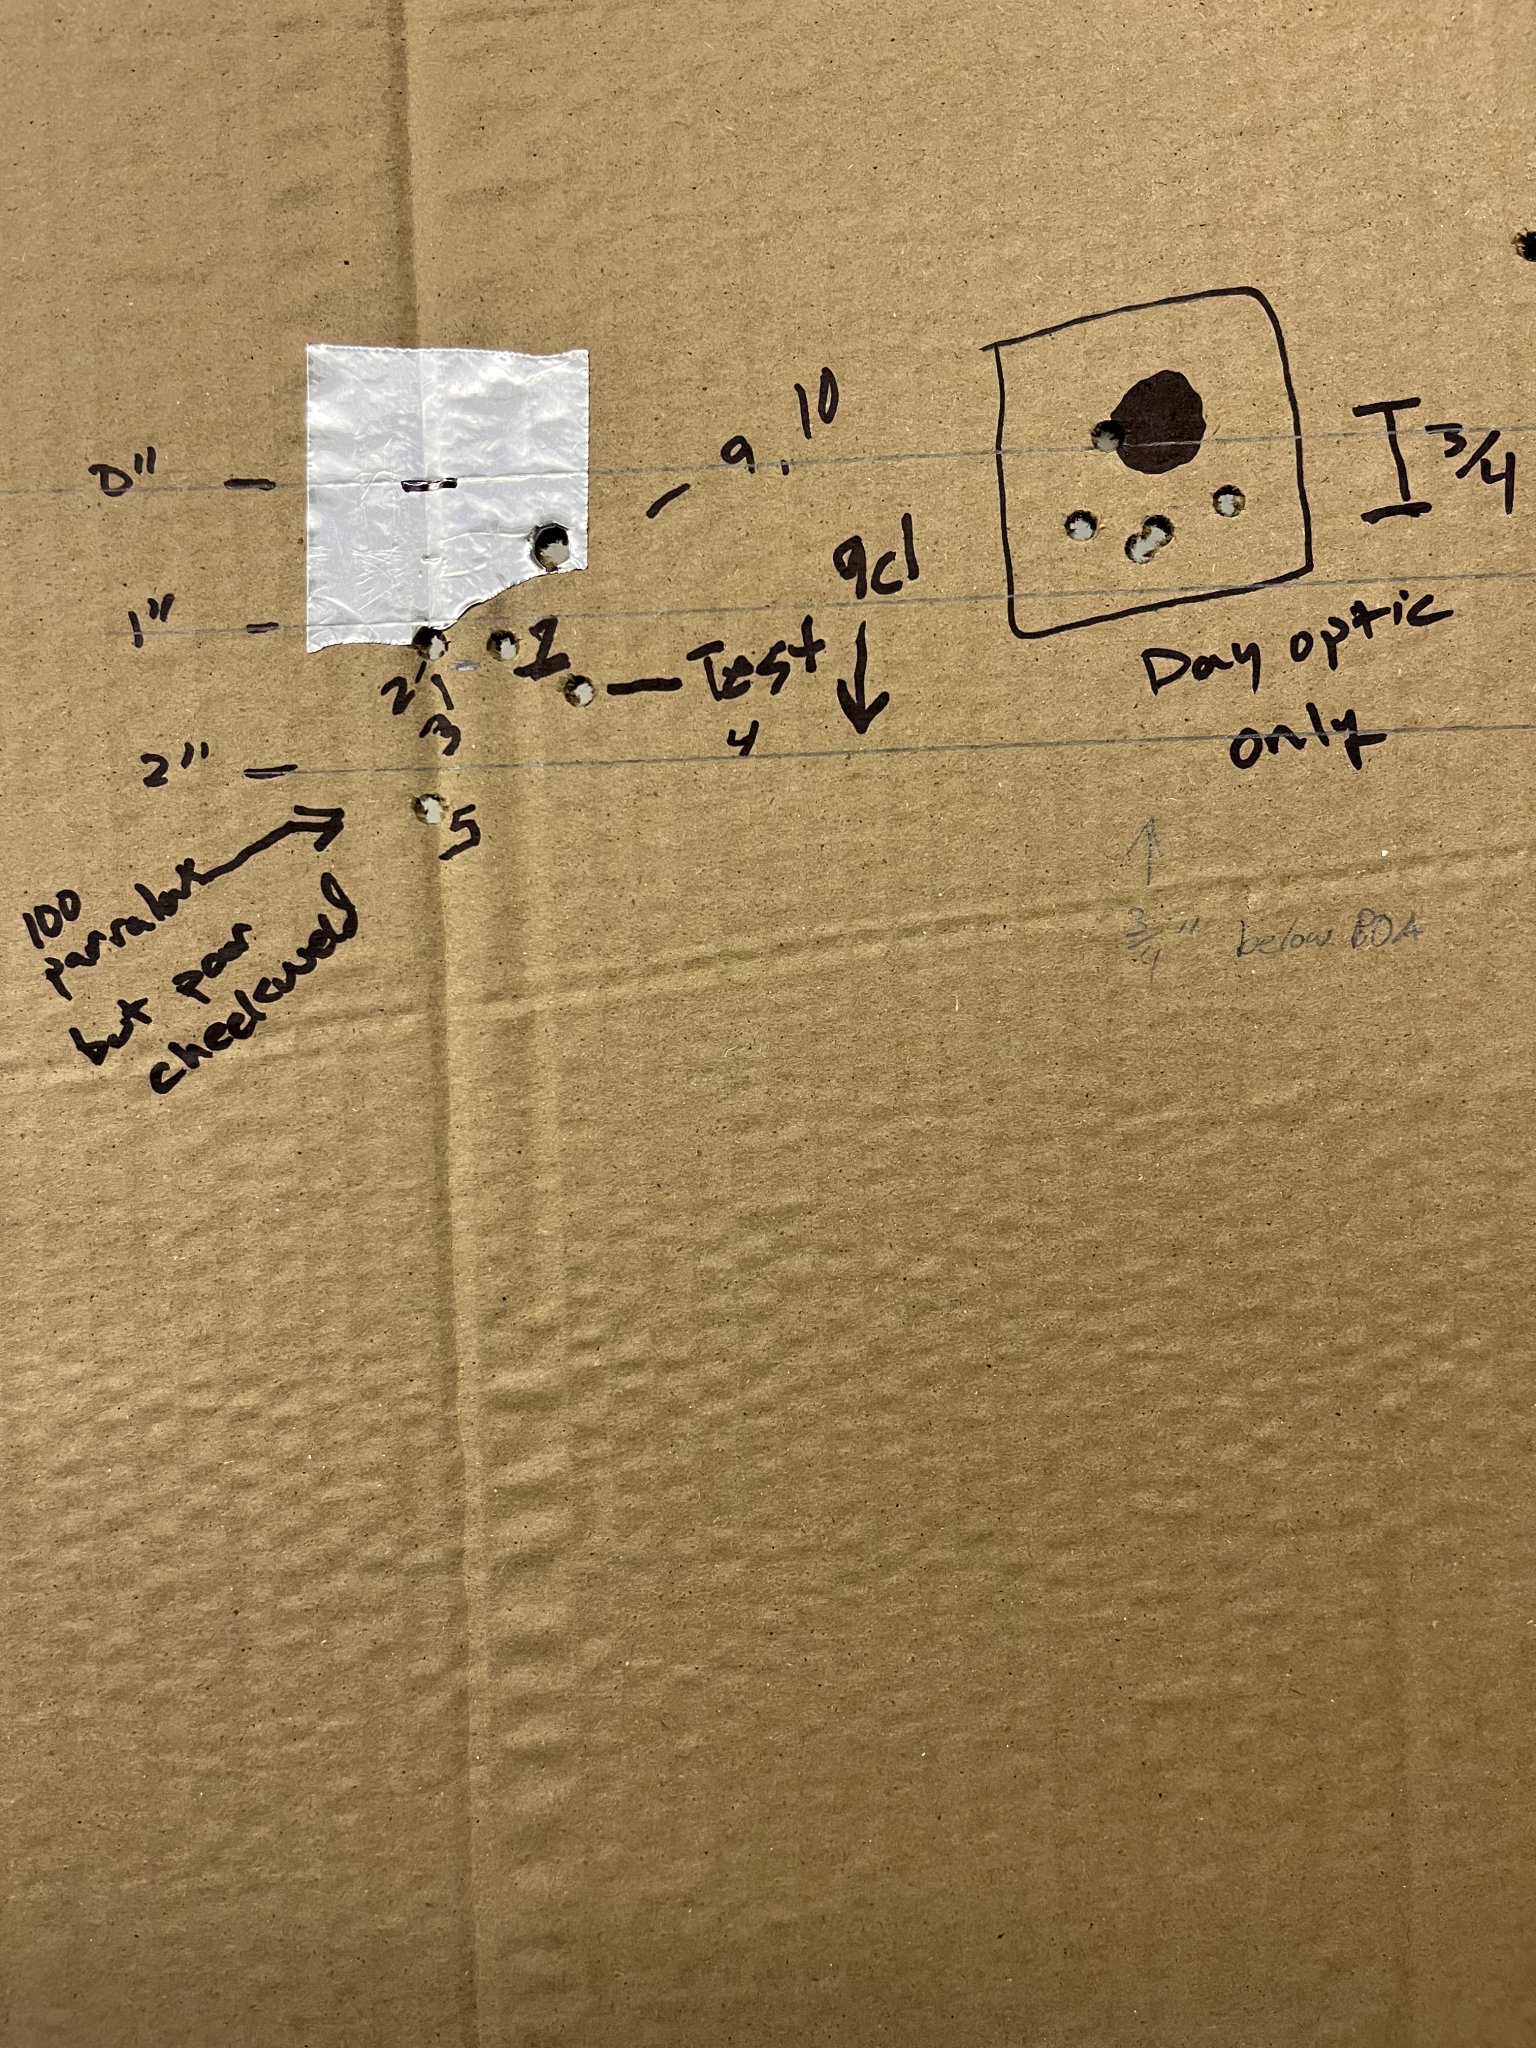 0"
1"
2"
9, 10
2, 1
3
Test
4
5
100
parralax
but poor
cheekweld
3/4
Day optic
only
3/4" below POA